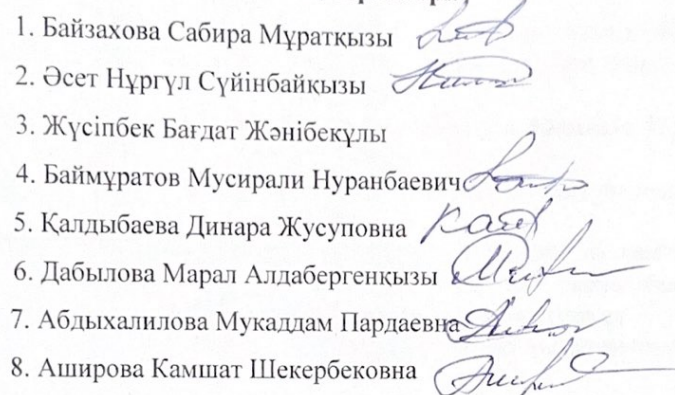 1. Байзахова Сабира Мұратқызы
2. Әсет Нұргүл Сүйінбайқызы
3. Жүсіпбек Бағдат Жәнібекұлы
4. Баймұратов Мусирали Нуранбаевич
5. Қалдыбаева Динара Жусуповна
6. Дабылова Марал Алдабергенқызы
7. Абдыхалилова Мукаддам Пардаевна
8. Аширова Камшат Шекербековна